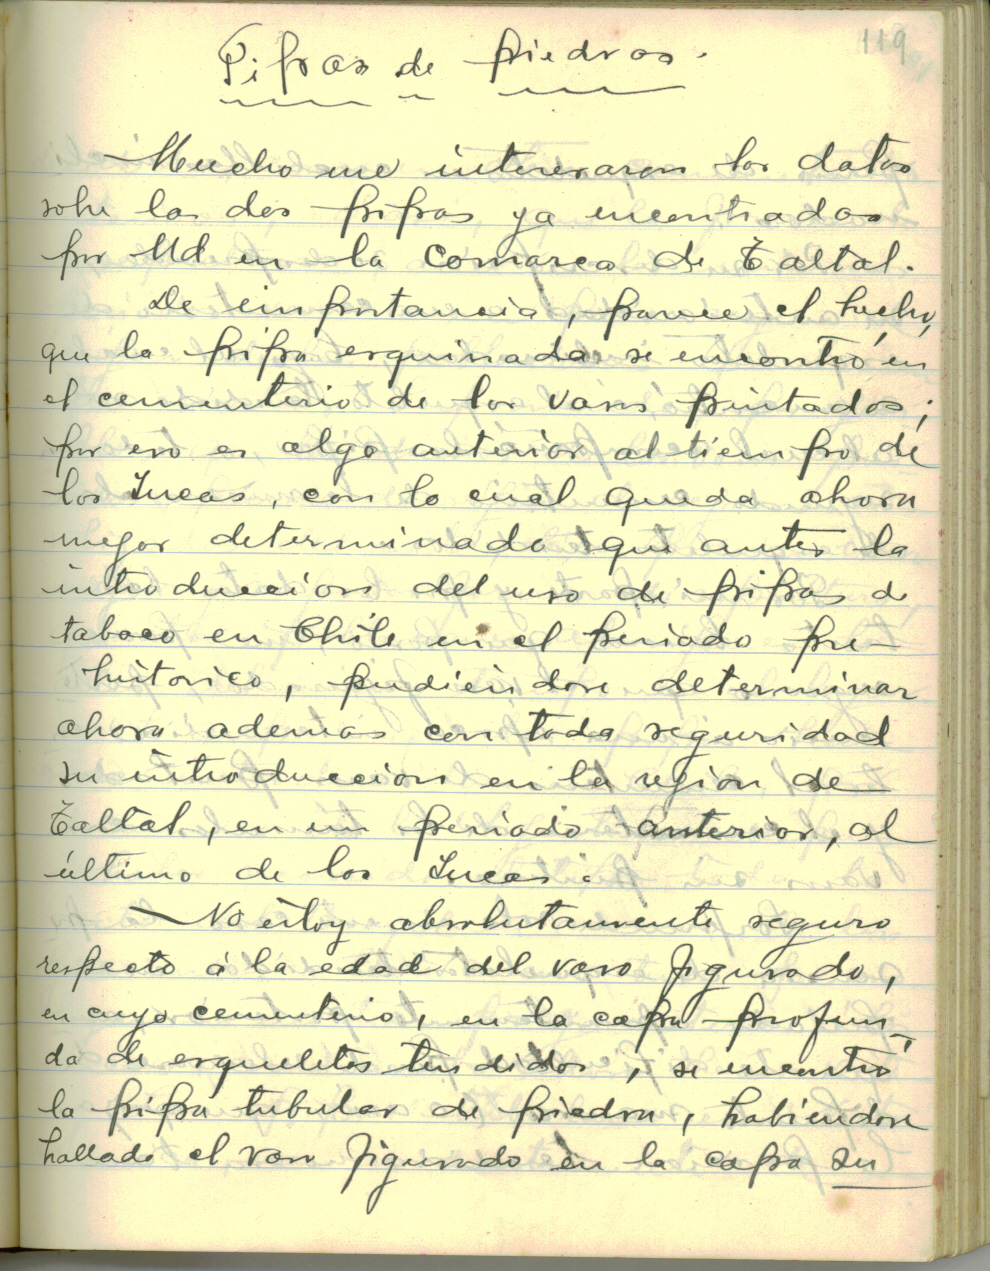 119
Pipas de piedras.
Mucho me interesaron los datos
sobre las dos pipas ya encontradas
por Ud en la comarca de Taltal.
De importancia, parece el hecho,
que la pipa esquinada se encontró en
el cementerio de los vasos pintados;
por eso es algo anterior al tiempo de
los Incas, con lo cual queda ahora
mejor determinado que antes la
introduccion del uso de pipas de
tabaco en Chile en el periodo pre-
historico, pudiendose determinar
ahora ademas con toda seguridad
su introduccion en la region de
Taltal, en un periodo anterior, al
último de los Incas.
No estoy absolutamente seguro
respecto á la edad del vaso figurado,
en cuyo cementerio, en la capa profun-
da de esqueletos tendidos, se encontró
la pipa tubular de piedra, habiendose
hallado el vaso figurado en la capa su